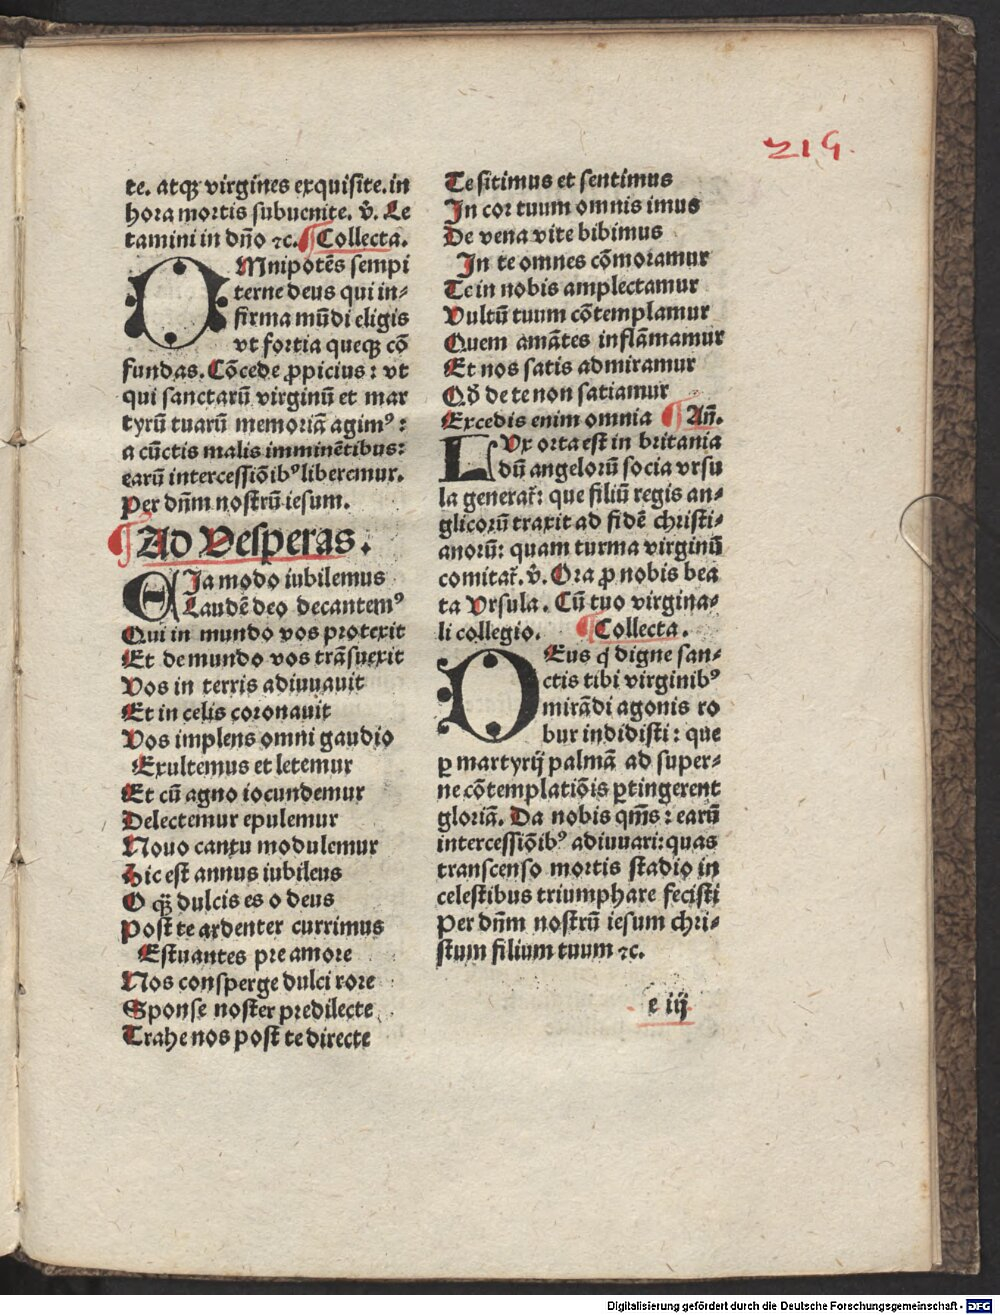 219.
te. atqꝫ virgines exquisite. in
hora mortis subuenite. v̄. Le
tamini in dn̄o ⁊c. ¶Collecta.
OMnipotēs sempi
terne deus qui in-
firma mūdi eligis
vt fortia queqꝫ cō
fundas. Cōcede ꝓpicius: vt
qui sanctarū virginū et mar
tyrū tuarū memoriā agimꝰ:
a cūctis malis imminētibus:
earū intercessiōibꝰ liberemur.
Per dn̄m nostrū iesum.
¶Ad Vesperas.
EIa modo iubilemus
Laudē deo decantemꝰ
Qui in mundo vos protexit
Et de mundo vos trāsuexit
Vos in terris adiuuauit
Et in celis coronauit
Vos implens omni gaudio
Exultemus et letemur
Et cū agno iocundemur
Delectemur epulemur
Nouo cantu modulemur
Hic est annus iubileus
O qꝫ̄ dulcis es o deus
Post te ardenter currimus
Estuantes pre amore
Nos consperge dulci rore
Sponse noster predilecte
Trahe nos post te directe
Te sitimus et sentimus
In cor tuum omnis imus
De vena vite bibimus
In te omnes cōmoramur
Te in nobis amplectamur
Vultū tuum cōtemplamur
Quem amātes inflāmamur
Et nos satis admiramur
Qd̄ de te non satiamur
Excedis enim omnia ¶An̄.
LVx orta est in britania
dū angelorū socia vrsu
la generaꝉ: que filiū regis an-
glicorū traxit ad fidē christi-
anorū: quam turma virginū
comitaꝉ. v̄. Ora ꝓ nobis bea
ta Vrsula. Cū tuo virgina-
li collegio. ¶Collecta.
DEus q̄ digne san-
ctis tibi virginibꝰ
mirādi agonis ro
bur indidisti: que
ꝑ martyrij palmā ad super-
ne cōtemplatiōis ꝑtingerent
gloriā. Da nobis qm̄s: earū
intercessiōibꝰ adiuuari: quas
transcenso mortis stadio in
celestibus triumphare fecisti
Per dn̄m nostrū iesum chri-
stum filium tuum ⁊c.
e iij
Digitalisierung gefördert durch die Deutsche Forschungsgemeinschaft - DFG